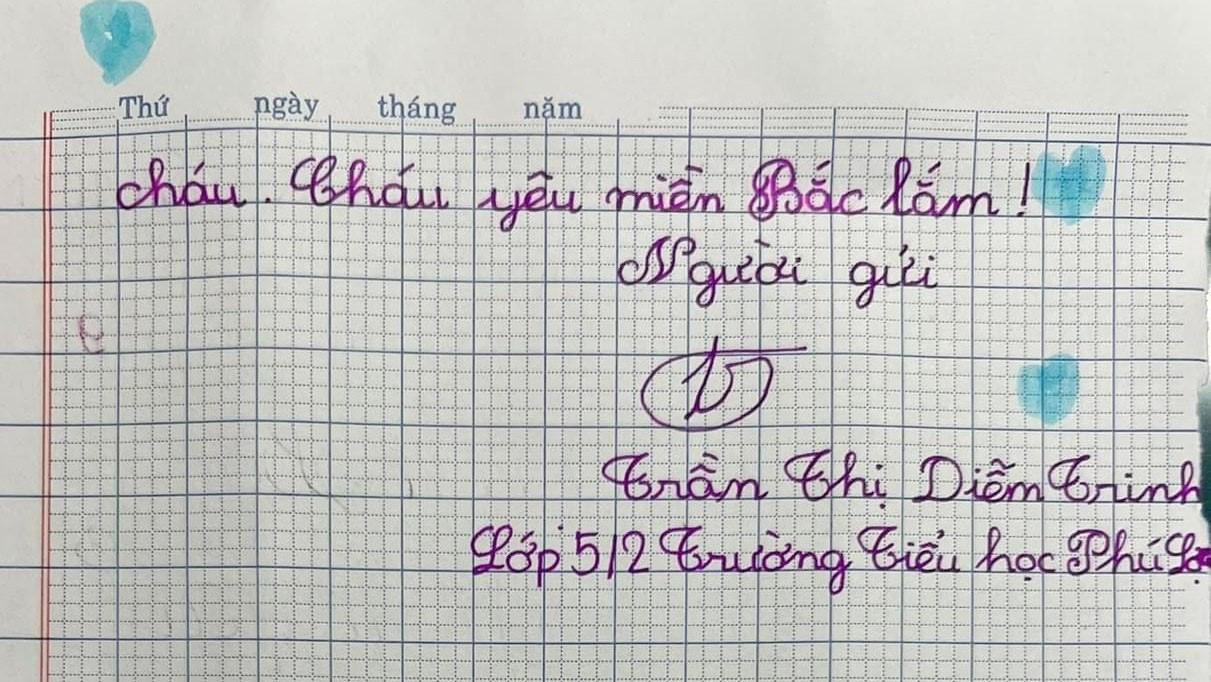 Thứ ngày tháng năm
cháu. Cháu yêu miền Bắc lắm!
Người gửi
Trần Thị Diễm Trinh
Lớp 5/2 Trường Tiểu học Phú